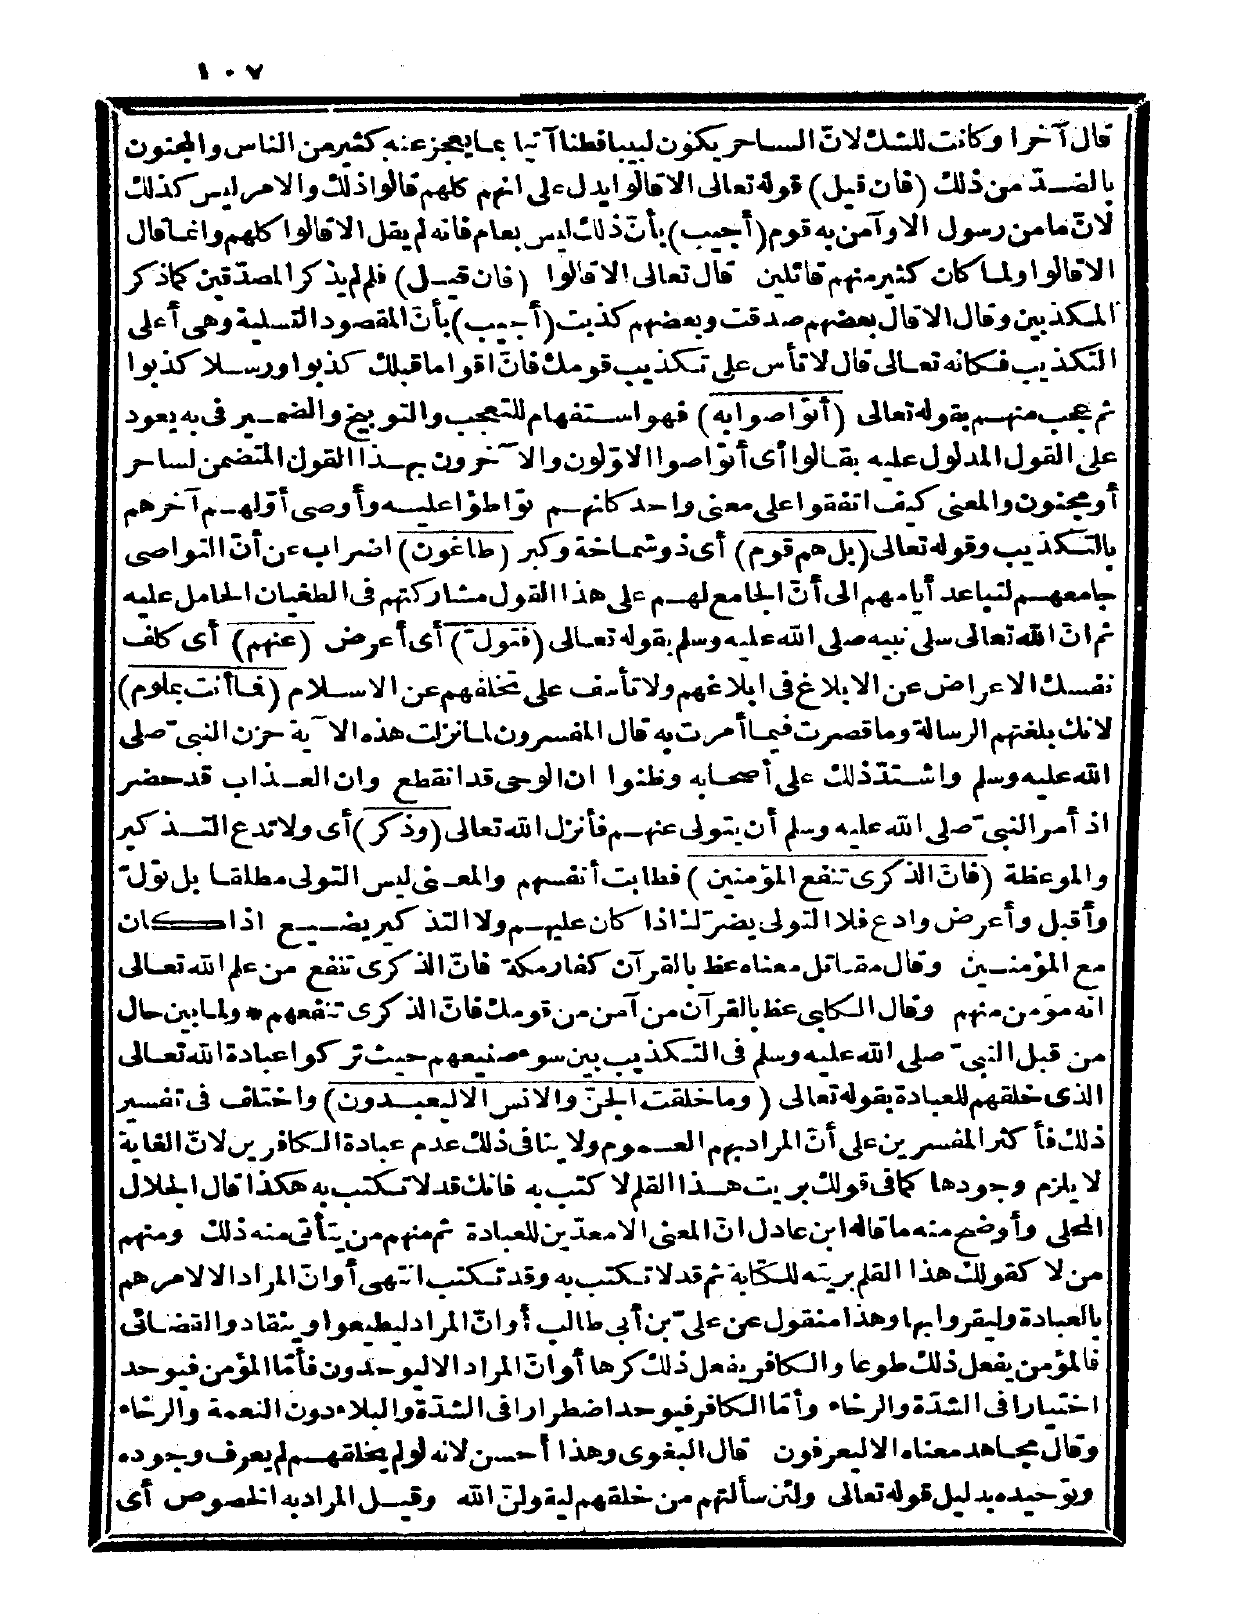 ١٠٧
قال آخرا وكانت للشك لانّ الساحر يكون لبيبا فطنا آتيا بما يعجز عنه كثير من الناس والمجنون
بالضدّ من ذلك (فان قيل) قوله تعالى الا قالوا يدل على انهم كلهم قالوا ذلك والامر ليس كذلك
لانّ ما من رسول الا وآمن به قوم (أجيب) بأنّ ذلك ليس بعام فانه لم يقل الا قالوا كلهم وانما قال
الا قالوا ولما كان كثير منهم قائلين قال تعالى الا قالوا (فان قيل) فلم لم يذكر المصدّقين كما ذكر
المكذبين وقال الا قال بعضهم صدقت وبعضهم كذبت (أجيب) بأنّ المقصود التسلية وهى أعلى
التكذيب فكانه تعالى قال لا تأس على تكذيب قومك فانّ اقواما قبلك كذبوا ورسلا كذبوا
ثم عجب منهم بقوله تعالى (أتواصوا به) فهو استفهام للتعجب والتوبيخ والضمير فى به يعود
على القول المدلول عليه بقالوا أى أتواصوا الاوّلون والآخرون بهذا القول المتضمن لساحر
أو مجنون والمعنى كيف اتفقوا على معنى واحد كانهم تواطؤا عليه وأوصى أوّلهم آخرهم
بالتكذيب وقوله تعالى (بل هم قوم) أى ذو شماخة وكبر (طاغون) اضراب عن أنّ التواصى
جامعهم لتباعد أيامهم الى أنّ الجامع لهم على هذا القول مشاركتهم فى الطغيان الحامل عليه
ثم انّ الله تعالى سلى نبيه صلى الله عليه وسلم بقوله تعالى (فتولّ) أى أعرض (عنهم) أى كلف
نفسك الاعراض عن الابلاغ فى ابلاغهم ولا تأسف على تخلفهم عن الاسلام (فما أنت بملوم)
لانك بلغتهم الرسالة وما قصرت فيما أمرت به قال المفسرون لما نزلت هذه الآية حزن النبىّ صلى
الله عليه وسلم واشتدّ ذلك على أصحابه وظنوا ان الوحى قد انقطع وان العذاب قد حضر
اذ أمر النبىّ صلى الله عليه وسلم أن يتولى عنهم فأنزل الله تعالى (وذكر) أى ولا تدع التذكير
والموعظة (فانّ الذكرى تنفع المؤمنين) فطابت أنفسهم والمعنى ليس التولى مطلقا بل تولّ
وأقبل وأعرض وادع فلا التولى يضرّك اذا كان عليهم ولا التذكير يضيع اذا كان
مع المؤمنين وقال مقاتل معناه عظ بالقرآن كفار مكة فانّ الذكرى تنفع من علم الله تعالى
انه مؤمن منهم وقال الكلبى عظ بالقرآن من آمن من قومك فانّ الذكرى تنفعهم * ولما بين حال
من قبل النبىّ صلى الله عليه وسلم فى التكذيب بين سوء صنيعهم حيث تركوا عبادة الله تعالى
الذى خلقهم للعبادة بقوله تعالى (وما خلقت الجنّ والانس الا ليعبدون) واختلف فى تفسير
ذلك فأكثر المفسرين على أنّ المراد بهم العموم ولا ينافى ذلك عدم عبادة الكافرين لانّ الغاية
لا يلزم وجودها كما فى قولك بريت هذا القلم لا كتب به فانك قد لا تكتب به هكذا قال الجلال
المحلى وأوضح منه ما قاله ابن عادل انّ المعنى الا معدّين للعبادة ثم منهم من يتأتى منه ذلك ومنهم
من لا كقولك هذا القلم بريته للكتابة ثم قد لا تكتب به وقد تكتب انتهى أو انّ المراد الا لامرهم
بالعبادة وليقروا بها وهذا منقول عن علىّ بن أبى طالب أو انّ المراد ليطيعوا وينقادوا لقضائى
فالمؤمن يفعل ذلك طوعا والكافر يفعل ذلك كرها أو انّ المراد الا ليوحدون فأمّا المؤمن فيوحد
اختيارا فى الشدّة والرخاء وأمّا الكافر فيوحد اضطرارا فى الشدّة والبلاء دون النعمة والرخاء
وقال مجاهد معناه الا ليعرفون قال البغوى وهذا أحسن لانه لو لم يخلقهم لم يعرف وجوده
وتوحيده بدليل قوله تعالى ولئن سألتهم من خلقهم ليقولنّ الله وقيل المراد به الخصوص أى